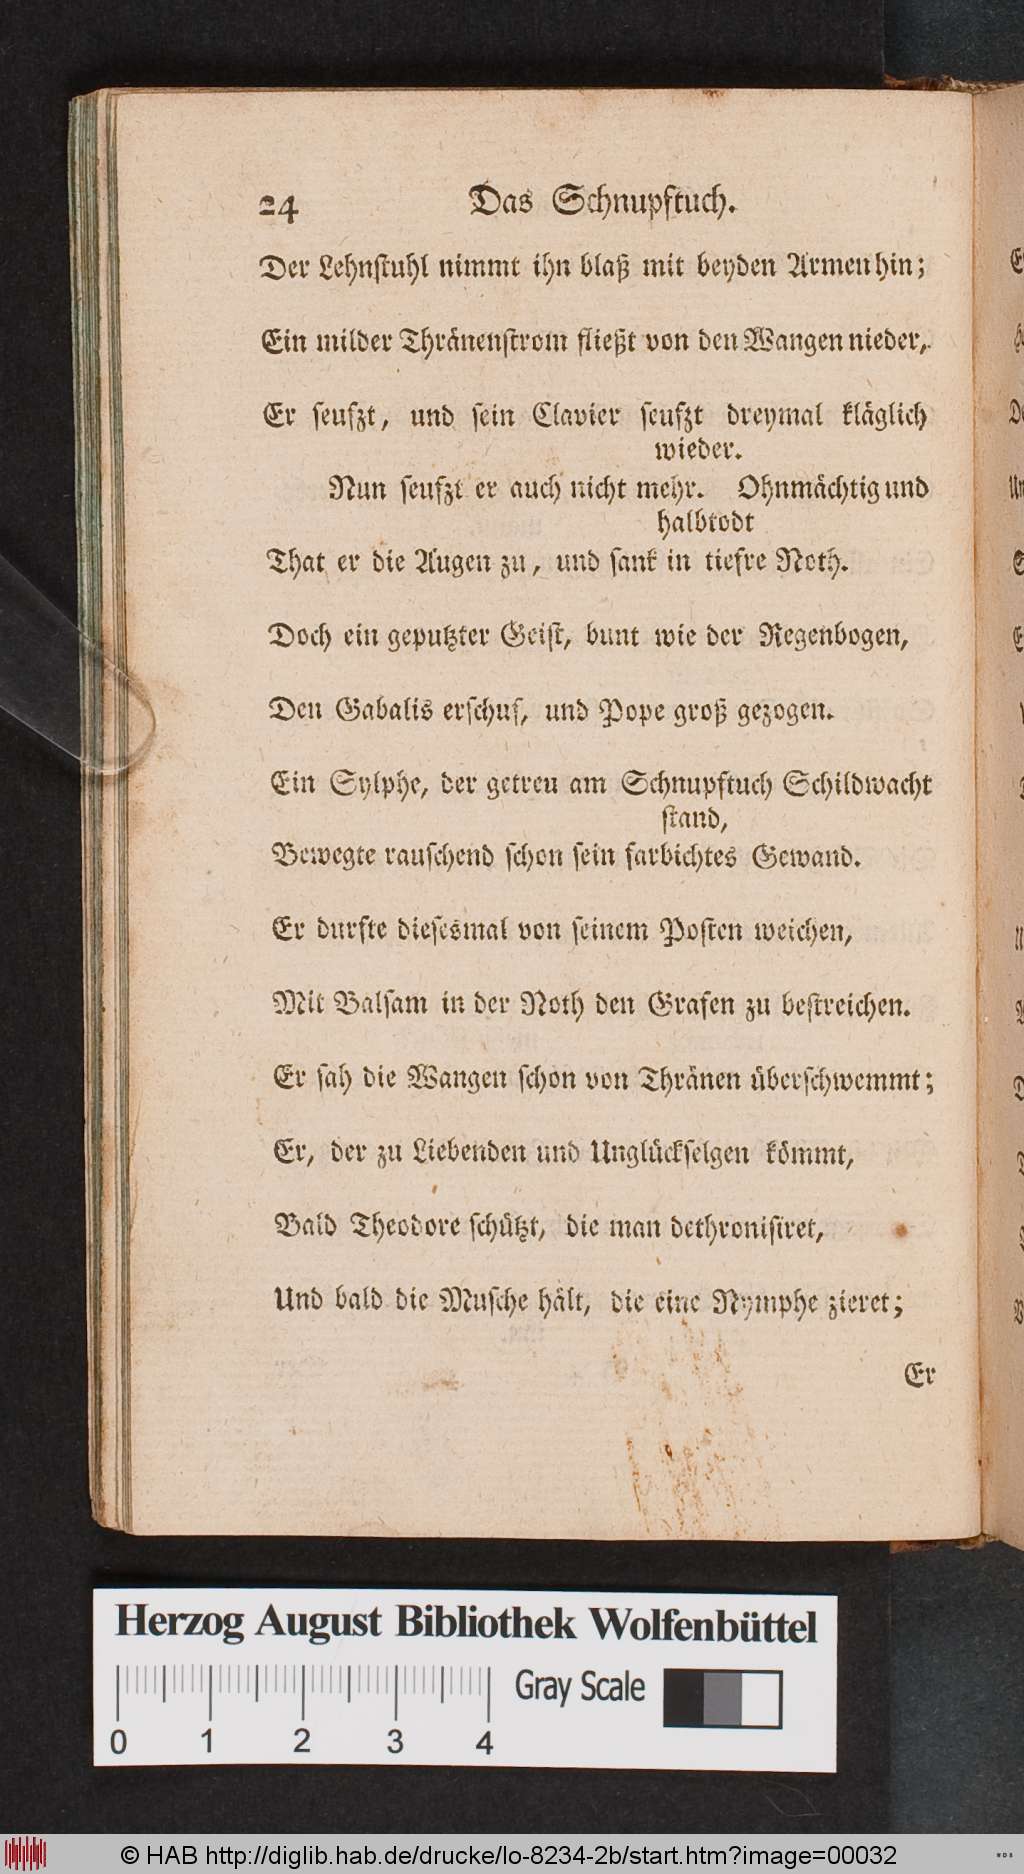 24 Das Schnupftuch.
Der Lehnſtuhl nimmt ihn blaß mit beyden Armen hin;
Ein milder Thränenſtrom fließt von den Wangen nieder,
Er ſeufzt, und ſein Clavier ſeufzt dreymal kläglich
wieder.
Nun ſeufzt er auch nicht mehr. Ohnmächtig und
halbtodt
That er die Augen zu, und ſank in tiefre Noth.
Doch ein geputzter Geiſt, bunt wie der Regenbogen,
Den Gabalis erſchuf, und Pope groß gezogen.
Ein Sylphe, der getreu am Schnupftuch Schildwacht
ſtand,
Bewegte rauſchend ſchon ſein farbichtes Gewand.
Er durfte dieſesmal von ſeinem Poſten weichen,
Mit Balſam in der Noth den Grafen zu beſtreichen.
Er ſah die Wangen ſchon von Thränen überſchwemmt;
Er, der zu Liebenden und Unglückſelgen kömmt,
Bald Theodore ſchützt, die man dethroniſiret,
Und bald die Muſche hält, die eine Nymphe zieret;
Er
Herzog August Bibliothek Wolfenbüttel
Gray Scale
0 1 2 3 4
© HAB http://diglib.hab.de/drucke/lo-8234-2b/start.htm?image=00032